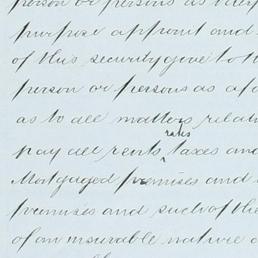 person or persons as they
purpose appoint and
of this security give to th
person or persons as afo
as to all matters relati
rates
pay all rents taxes and
Mortgaged premises and
premises and such of the
of an insurable nature